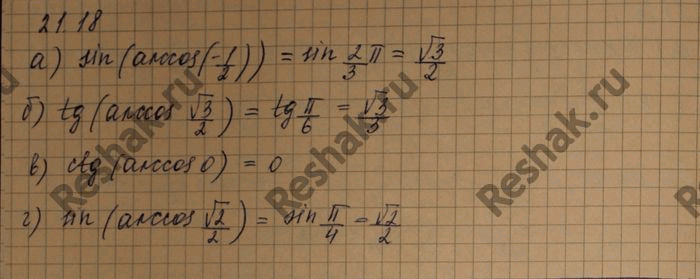 21.18
а) sin(arccos(-1/2)) = sin 2/3 π = √3/2
б) tg(arccos √3/2) = tg π/6 = √3/3
в) ctg(arccos 0) = 0
г) sin(arccos √2/2) = sin π/4 = √2/2
Reshak.ru
Reshak.ru
Reshak.ru
Reshak.ru